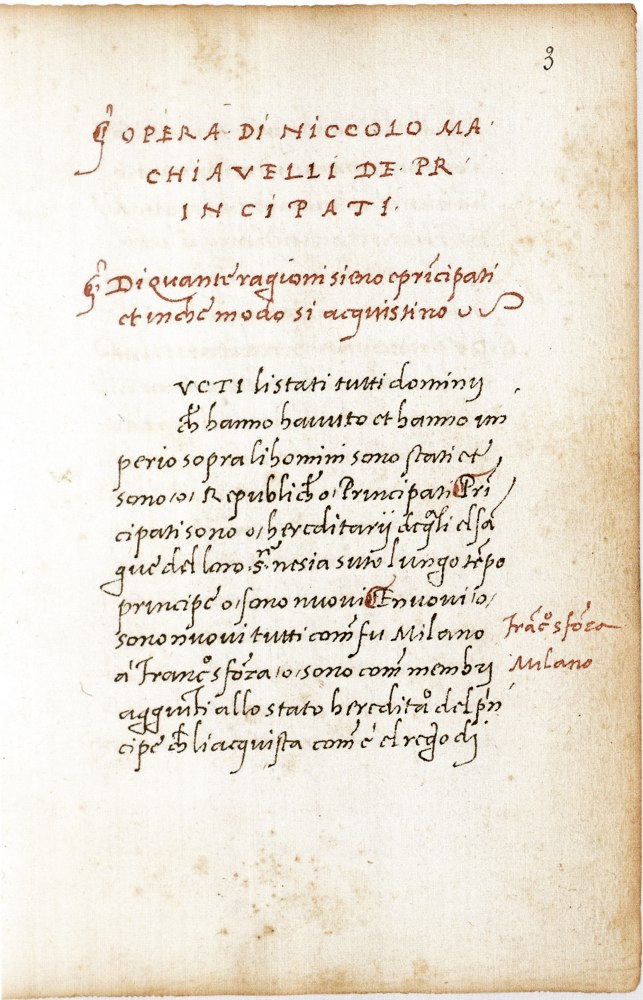 3
OPERA DI NICCOLO MA
CHIAVELLI DE PR
INCIPATI.
Di quante ragioni sieno e pricipati
et in che modo si acquistino
VCTI li stati tutti dominij
ch hanno havuto et hanno im
perio sopra li homini sono stati et
sono /o/ Republich o/ Principati Pri
cipati sono o/ hereditarij de qli el sa
gue del loro S.re ne sia suto lungo tepo
principe o/ sono nuovi E nuovi /o/
sono nuovi tutti com fu Milano
a Franc.o sforza /o/ sono com membri
aggiuti allo stato heredita.o del prin
cipe ch li acquista com e el regno di
Franc.o sforza
Milano